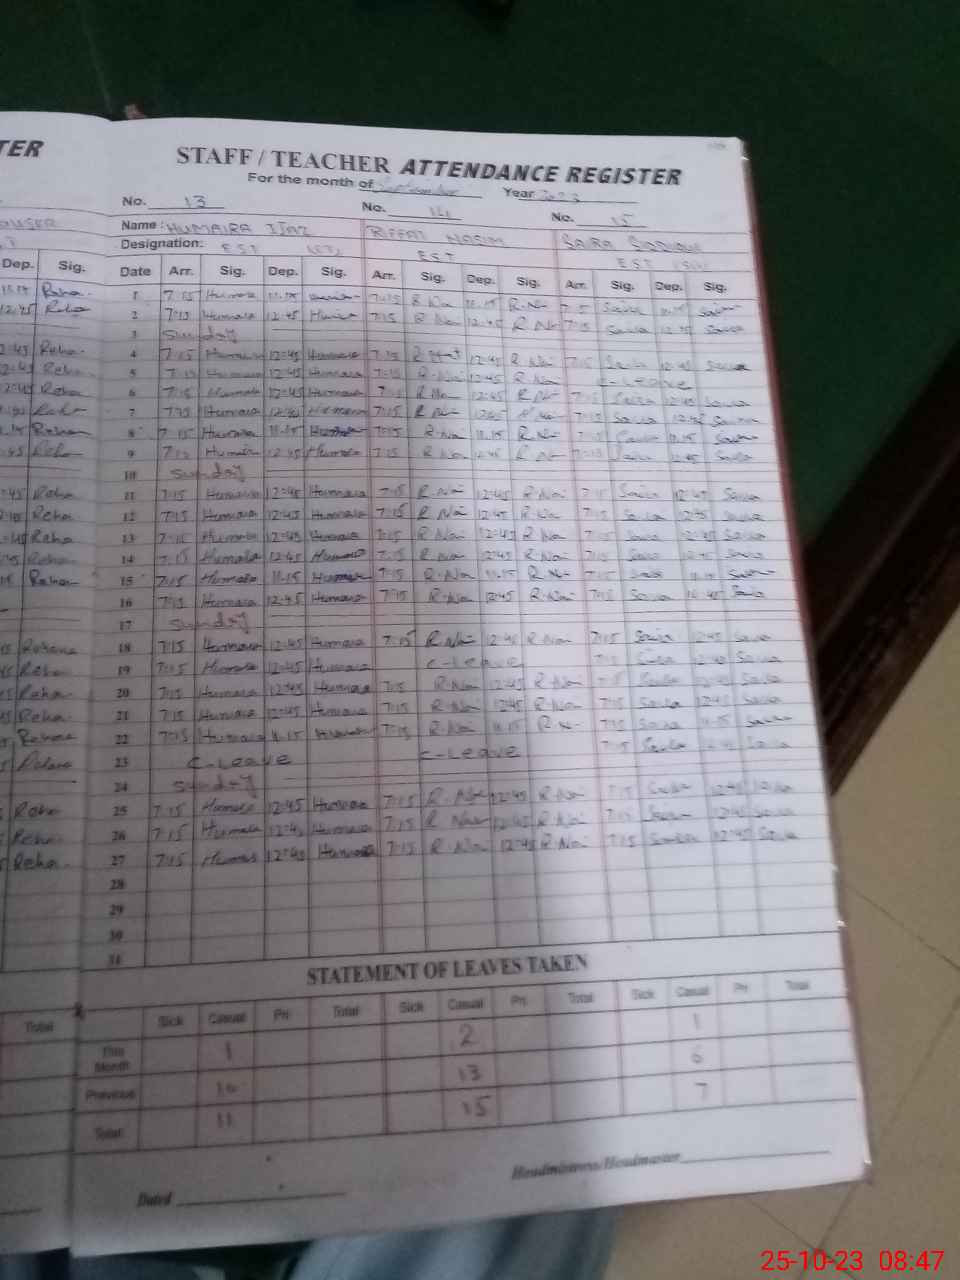 TER
STAFF / TEACHER ATTENDANCE REGISTER
For the month of September Year 2023
No. 13 No. 14 No. 15
Name: HUMAIRA IJAZ RIFFAT NASIM SAIRA SIDDIQUI
Designation: EST EST EST
Dep. Sig. Date Arr. Sig. Dep. Sig. Arr. Sig. Dep. Sig. Arr. Sig. Dep. Sig.
11.15 Reha 1 7:15 Humaira 11.15 7:15 R Na 11.15 R. Na 7:15 Saira 11.15 Saira
12:45 Reha 2 7:15 Humaira 12:45 Humaira 7:15 R Na 12:45 R Na 7:15 Saira 12:45 Saira
3 Sunday
2:45 Reha 4 7:15 Humaira 12:45 Humaira 7:15 12:45 R. Na 7:15 Saira 12:45 Saira
2:45 Reha 5 7:15 Humaira 12:45 Humaira 7:15 R. Na 12:45 R. Na C-Leave
2:45 Reha 6 7:15 Humaira 12:45 Humaira 7:15 R Na 12:45 R. Na 7:15 Saira 12:45 Saira
Reha 7 7:15 Humaira 12:45 Humaira 7:15 R Na 12:45 R. Na 7:15 Saira 12:45 Saira
Rehana 8 7:15 Humaira 11.15 7:15 R. Na 11.15 R. Na 7:15 Saira 11.15 Saira
:45 Reha 9 7:15 Humaira 12:45 Humaira 7:15 R. Na 12:45 R Na 7:15 Saira 12:45 Saira
10 Sunday
:45 Reha 11 7:15 Humaira 12:45 Humaira 7:15 R. Na 12:45 R. Na 7:15 Saira 12:45 Saira
Reha 12 7:15 Humaira 12:45 Humaira 7:15 R. Na 12:45 R. Na 7:15 Saira 12:45 Saira
:45 Reha 13 7:15 Humaira 12:45 Humaira 7:15 R. Na 12:45 R. Na 7:15 Saira 12:45 Saira
Rehan 14 7:15 Humaira 12:45 Humaira 7:15 R. Na 12:45 R. Na 7:15 Saira 12:45 Saira
Rehan 15 7:15 Humaira 11.15 Humaira 7:15 R. Na 11.15 R Na 7:15 Saira 11.15 Saira
16 7:15 Humaira 12:45 Humaira 7:15 R. Na 12:45 R. Na 7:15 Saira 12:45 Saira
17 Sunday
Rehana 18 7:15 Humaira 12:45 Humaira 7:15 R. Na 12:45 R Na 7:15 Saira 12:45 Saira
Reha 19 7:15 Humaira 12:45 Humaira C-Leave 7:15 Saira 12:45 Saira
Reha 20 7:15 Humaira 12:45 Humaira 7:15 R. Na 12:45 R. Na 7:15 Saira 12:45 Saira
Reha 21 7:15 Humaira 12:45 Humaira 7:15 R. Na 12:45 R. Na 7:15 Saira 12:45 Saira
Rehana 22 7:15 Humaira 11.15 Humaira 7:15 R. Na 11.15 R Na 7:15 Saira 11.15 Saira
Rehana 23 C-Leave C-Leave 7:15 Saira 12:45 Saira
24 Sunday
Reha 25 7:15 Humaira 12:45 Humaira 7:15 R. Na 12:45 R. Na 7:15 Saira 12:45 Saira
Reha 26 7:15 Humaira 12:45 Humaira 7:15 R Na 12:45 R. Na 7:15 Saira 12:45 Saira
Reha 27 7:15 Humaira 12:45 Humaira 7:15 R. Na 12:45 R. Na 7:15 Saira 12:45 Saira
28
29
30
31
STATEMENT OF LEAVES TAKEN
Total Sick Casual Pri Total Sick Casual Pri Total Sick Casual Pri Total
This Month 1 2 1
Previous 10 13 6
Total 11 15 7
Dated Headmistress/Headmaster
25-10-23 08:47